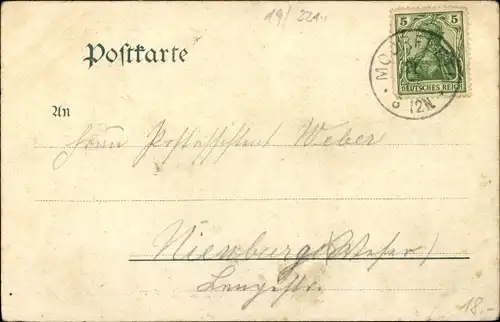 19/221.
Postkarte
5 5
DEUTSCHES REICH
12N
An
Herrn Postassistent Weber
Nienburg (Weser)
Langestr.
18,-